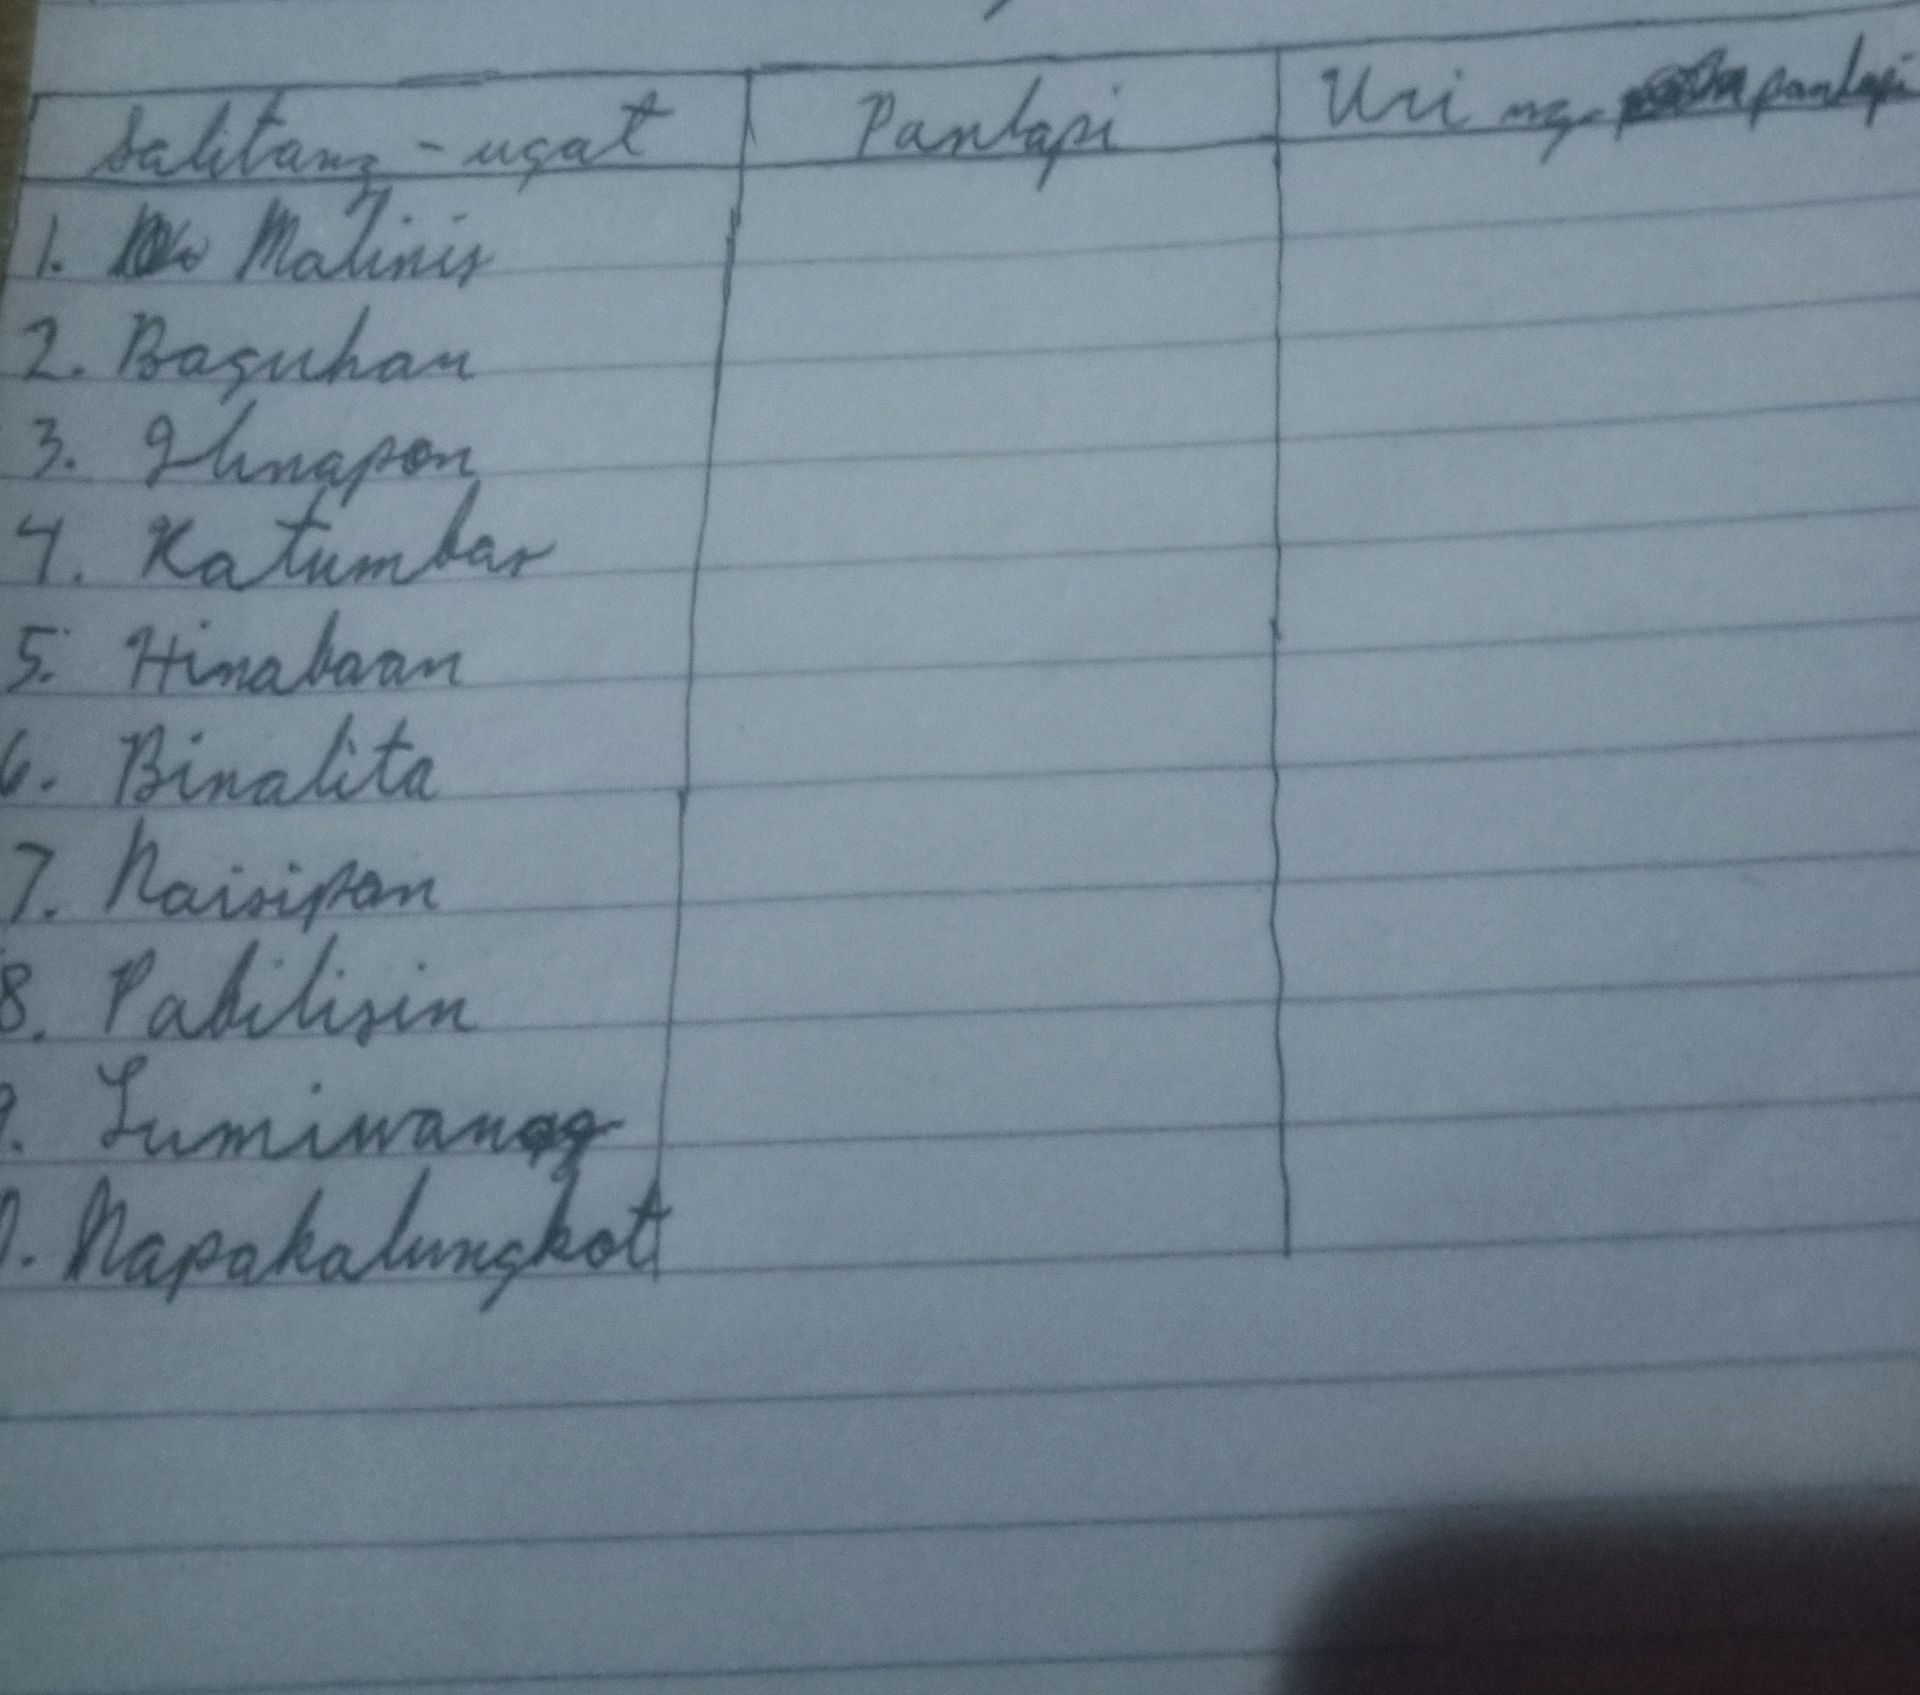 Salitang-ugat Panlapi Uri ng panlapi
1. Malinis
2. Baguhan
3. Itinapon
4. Katumbas
5. Hinabaan
6. Binalita
7. Naisipan
8. Pabilisin
9. Lumiwanag
0. Napakalungkot